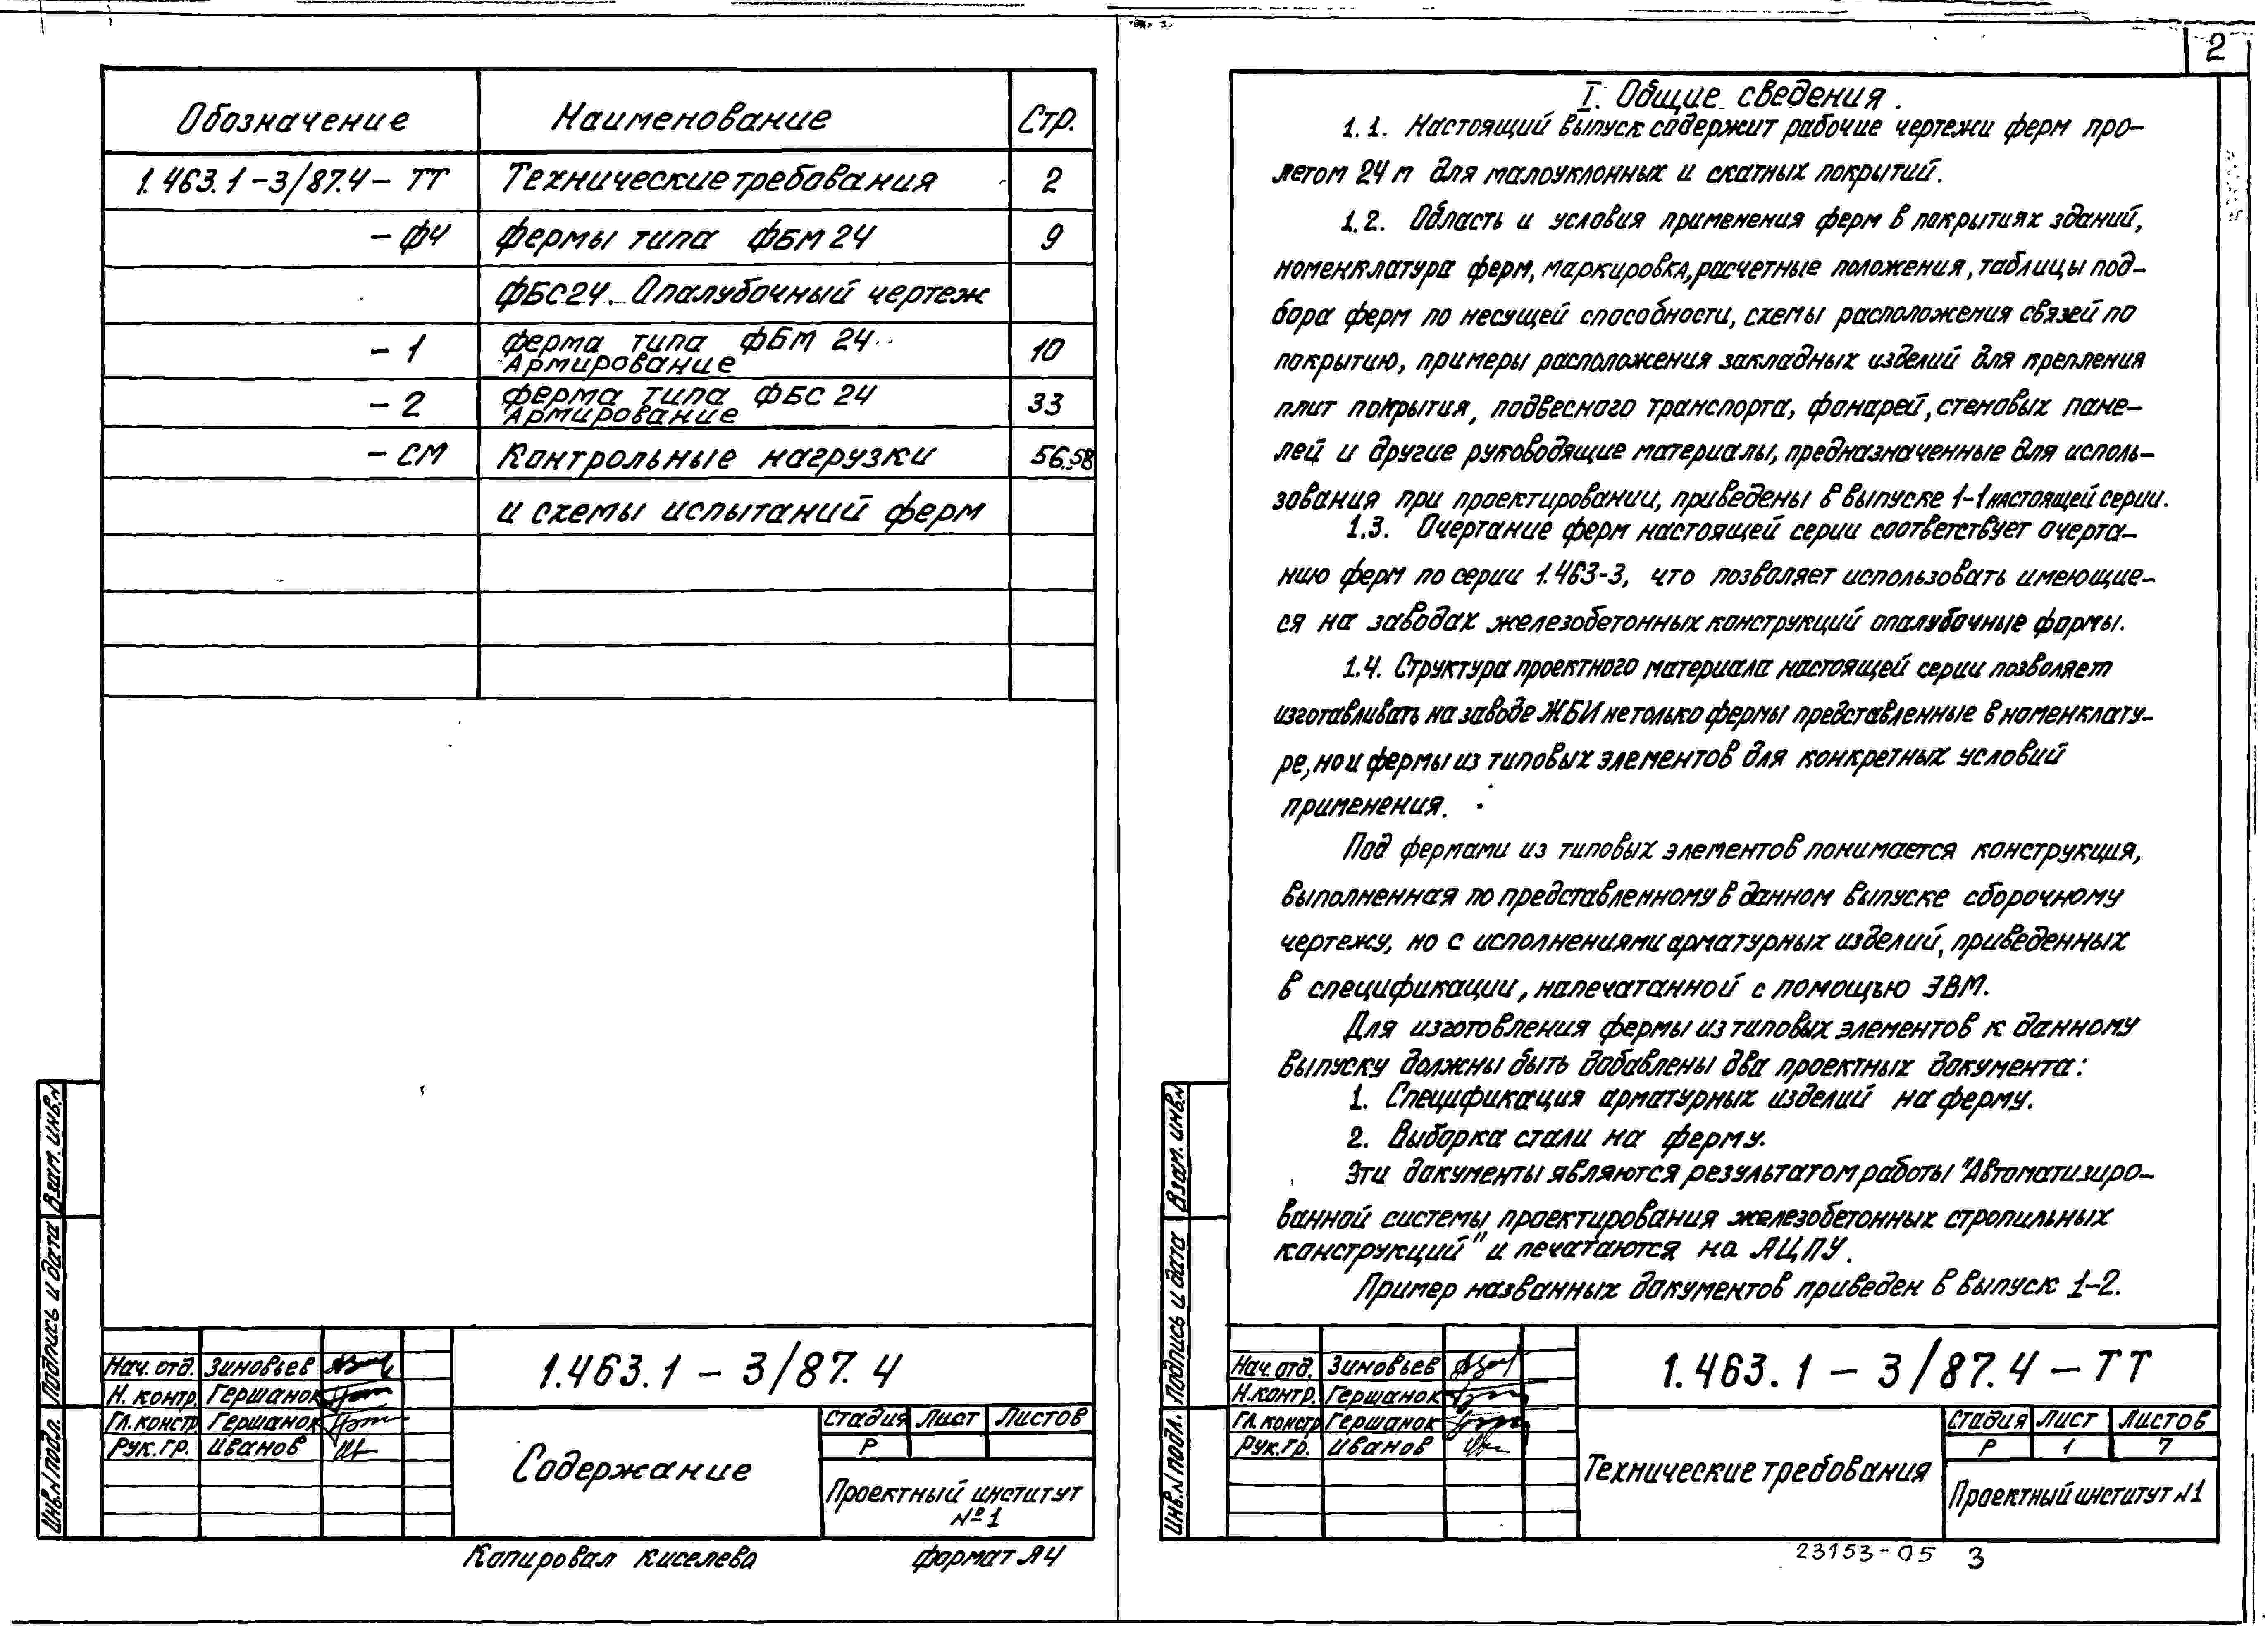 Обозначение Наименование Стр.
1.463.1-3/87.4-ТТ Технические требования 2
-Ф4 Фермы типа ФБМ 24 9
ФБС24. Опалубочный чертеж
-1 Ферма типа ФБМ 24 10
Армирование
-2 Ферма типа ФБС 24 33
Армирование
-СМ Контрольные нагрузки 56.58
и схемы испытаний ферм
Взам. инв.N
Подпись и дата
Инв.N подл.
Нач. отд. Зиновьев
Н. контр. Гершанок
Гл. констр. Гершанок
Рук. гр. Иванов
1.463.1 - 3/87. 4
Содержание
Стадия Лист Листов
Р
Проектный институт
№1
Копировал Киселева Формат А4
2
I. Общие сведения.
1.1. Настоящий выпуск содержит рабочие чертежи ферм про-
летом 24 м для малоуклонных и скатных покрытий.
1.2. Область и условия применения ферм в покрытиях зданий,
номенклатура ферм, маркировка, расчетные положения, таблицы под-
бора ферм по несущей способности, схемы расположения связей по
покрытию, примеры расположения закладных изделий для крепления
плит покрытия, подвесного транспорта, фонарей, стеновых пане-
лей и другие руководящие материалы, предназначенные для исполь-
зования при проектировании, приведены в выпуске 1-1 настоящей серии.
1.3. Очертание ферм настоящей серии соответствует очерта-
нию ферм по серии 1.463-3, что позволяет использовать имеющие-
ся на заводах железобетонных конструкций опалубочные формы.
1.4. Структура проектного материала настоящей серии позволяет
изготавливать на заводе ЖБИ не только фермы представленные в номенклату-
ре, но и фермы из типовых элементов для конкретных условий
применения.
Под фермами из типовых элементов понимается конструкция,
выполненная по представленному в данном выпуске сборочному
чертежу, но с исполнениями арматурных изделий, приведенных
в спецификации, напечатанной с помощью ЭВМ.
Для изготовления фермы из типовых элементов к данному
выпуску должны быть добавлены два проектных документа:
1. Спецификация арматурных изделий на ферму.
2. Выборка стали на ферму.
Эти документы являются результатом работы "Автоматизиро-
ванной системы проектирования железобетонных стропильных
конструкций" и печатаются на АЦПУ.
Пример названных документов приведен в выпуск 1-2.
Взам. инв.N
Подпись и дата
Инв.N подл.
Нач. отд. Зиновьев
Н.контр. Гершанок
Гл. констр. Гершанок
Рук. гр. Иванов
1.463.1 - 3/87. 4 - ТТ
Технические требования
Стадия Лист Листов
Р 1 7
Проектный институт N1
23153-05 3